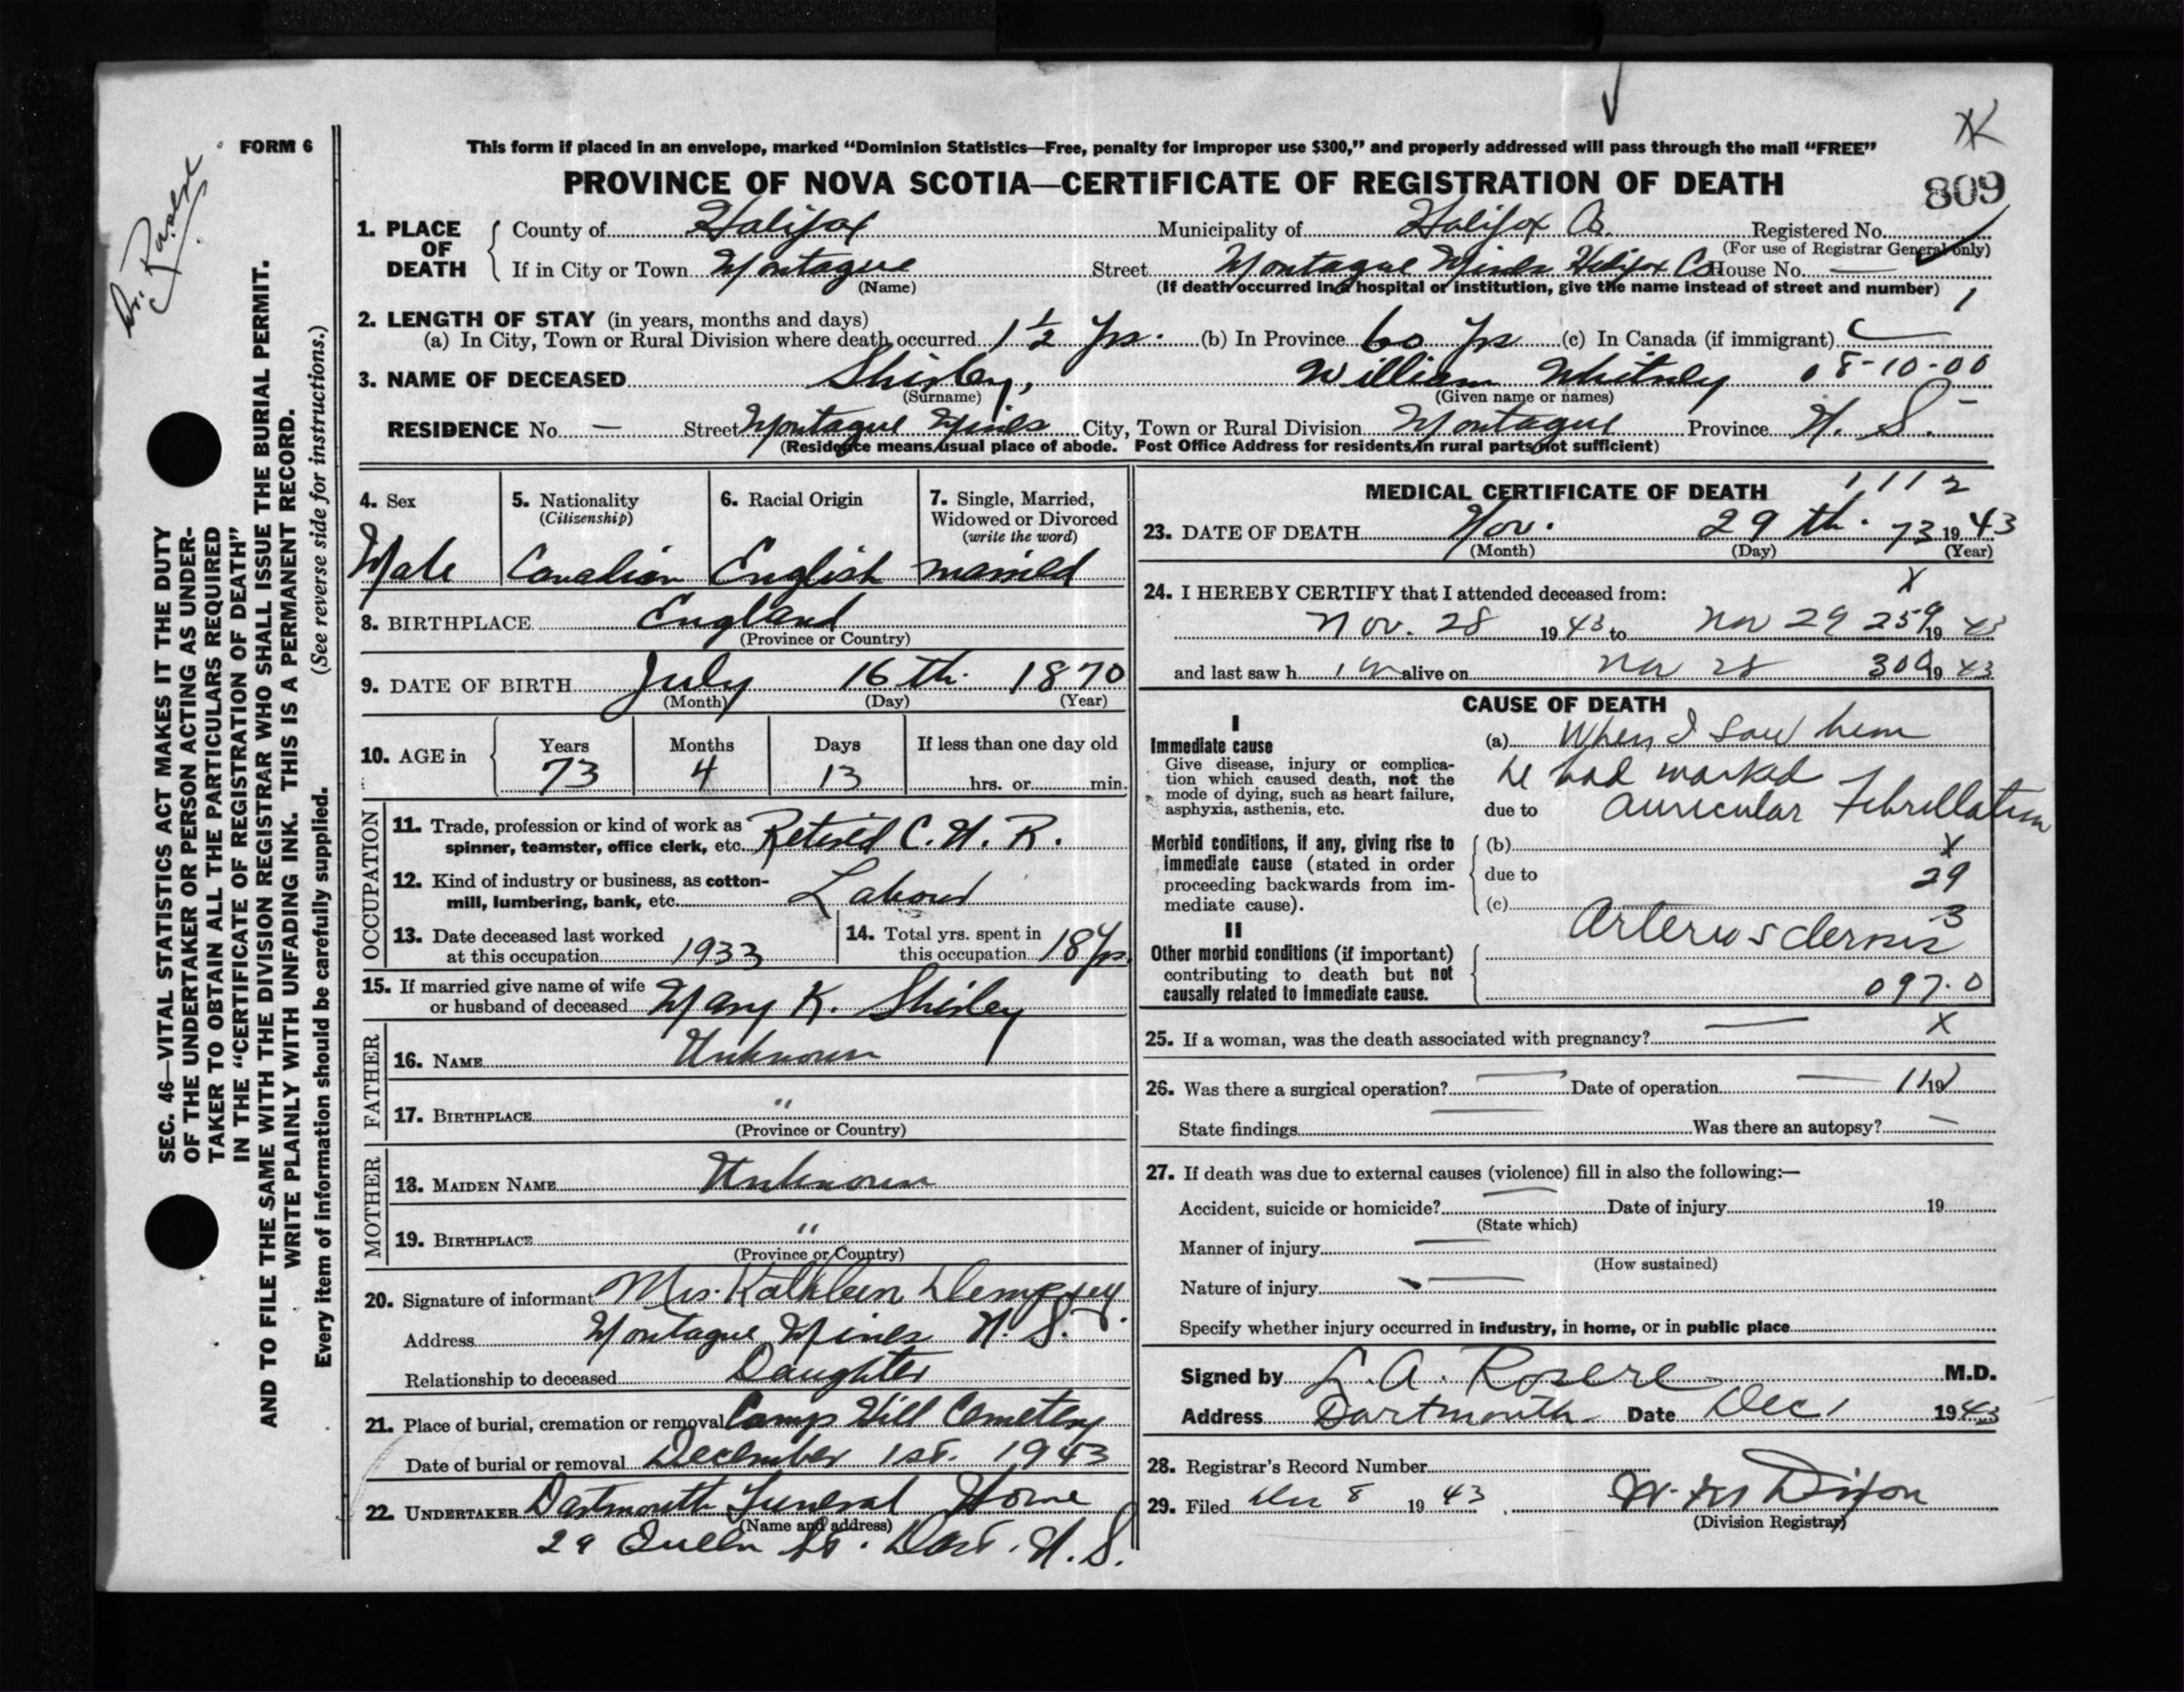 Dr.
FORM 6
This form if placed in an envelope, marked “Dominion Statistics—Free, penalty for improper use $300,” and properly addressed will pass through the mail “FREE”
PROVINCE OF NOVA SCOTIA—CERTIFICATE OF REGISTRATION OF DEATH
809
1. PLACE OF DEATH
County of Halifax Municipality of Halifax Co. Registered No.
(For use of Registrar General only)
If in City or Town Montague Street Montague Mines Halifax Co House No. —
(Name) (If death occurred in a hospital or institution, give the name instead of street and number) 1
2. LENGTH OF STAY (in years, months and days)
(a) In City, Town or Rural Division where death occurred 1 1/2 Yrs. (b) In Province 60 Yrs (c) In Canada (if immigrant)
3. NAME OF DECEASED Shirley, William Whitney 08-10-00
(Surname) (Given name or names)
RESIDENCE No. — Street Montague Mines City, Town or Rural Division Montague Province N. S.
(Residence means usual place of abode. Post Office Address for residents in rural parts not sufficient)
4. Sex 5. Nationality (Citizenship) 6. Racial Origin 7. Single, Married, Widowed or Divorced (write the word)
Male Canadian English married
8. BIRTHPLACE England
(Province or Country)
9. DATE OF BIRTH July 16th. 1870
(Month) (Day) (Year)
10. AGE in Years Months Days If less than one day old
73 4 13 hrs. or min.
OCCUPATION
11. Trade, profession or kind of work as
spinner, teamster, office clerk, etc. Retired C. N. R.
12. Kind of industry or business, as cotton-
mill, lumbering, bank, etc. Labour
13. Date deceased last worked
at this occupation 1933
14. Total yrs. spent in
this occupation 18 Yrs.
15. If married give name of wife
or husband of deceased Mary K. Shirley
FATHER
16. NAME Unknown
17. BIRTHPLACE "
(Province or Country)
MOTHER
18. MAIDEN NAME Unknown
19. BIRTHPLACE "
(Province or Country)
20. Signature of informant Mrs. Kathleen Dempsey
Address Montague Mines N. S.
Relationship to deceased Daughter
21. Place of burial, cremation or removal Camp Hill Cemetery
Date of burial or removal December 1st. 1943
22. UNDERTAKER Dartmouth Funeral Home
(Name and address)
29 Queen St. Dart. N. S.
MEDICAL CERTIFICATE OF DEATH 1112
23. DATE OF DEATH Nov. 29th. 73 1943
(Month) (Day) (Year)
24. I HEREBY CERTIFY that I attended deceased from: X
Nov. 28 1943 to Nov 29 259 19 43
and last saw h im alive on Nov 28 309 19 43
CAUSE OF DEATH
I
Immediate cause
Give disease, injury or complica-
tion which caused death, not the
mode of dying, such as heart failure,
asphyxia, asthenia, etc.
(a) When I saw him
he had marked
due to auricular Fibrillation
Morbid conditions, if any, giving rise to
immediate cause (stated in order
proceeding backwards from im-
mediate cause).
(b) X
due to 29
(c) 3
II
Other morbid conditions (if important)
contributing to death but not
causally related to immediate cause.
Arteriosclerosis
097.0
25. If a woman, was the death associated with pregnancy? — X
26. Was there a surgical operation? — Date of operation — 19
State findings — Was there an autopsy? —
27. If death was due to external causes (violence) fill in also the following:—
Accident, suicide or homicide? — Date of injury 19
(State which)
Manner of injury —
(How sustained)
Nature of injury —
Specify whether injury occurred in industry, in home, or in public place
Signed by M.D.
Address Dartmouth Date Dec 1 1943
28. Registrar's Record Number
29. Filed Dec 8 1943, Dixon
(Division Registrar)
SEC. 46—VITAL STATISTICS ACT MAKES IT THE DUTY
OF THE UNDERTAKER OR PERSON ACTING AS UNDER-
TAKER TO OBTAIN ALL THE PARTICULARS REQUIRED
IN THE “CERTIFICATE OF REGISTRATION OF DEATH”
AND TO FILE THE SAME WITH THE DIVISION REGISTRAR WHO SHALL ISSUE THE BURIAL PERMIT.
WRITE PLAINLY WITH UNFADING INK. THIS IS A PERMANENT RECORD.
Every item of information should be carefully supplied. (See reverse side for instructions.)